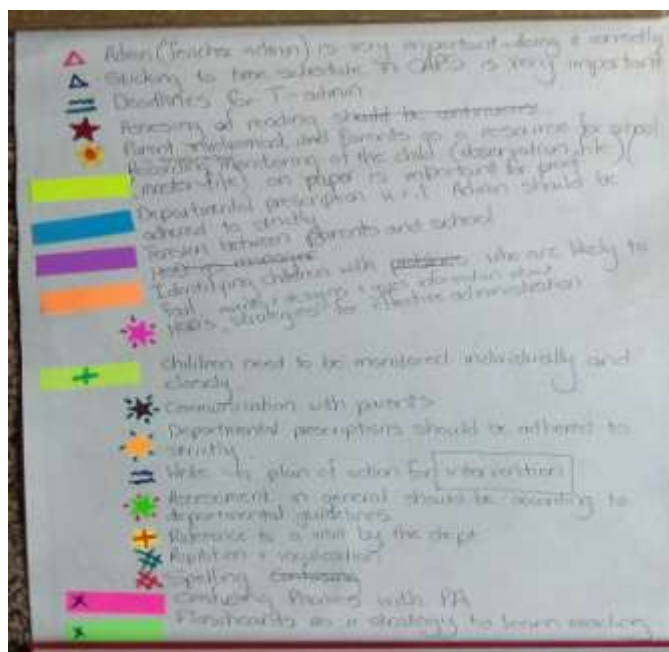 Admin (Teacher admin) is very important doing it correctly
Sticking to time schedule in CAPS is very important
Deadlines for T-admin
Assessing of reading should be continuous
Parent involvement and Parents as a resource for school
Recording monitoring of the child (observation file) (
on paper is important for proof
Departmental prescription w.r.t. Admin should be
adhered to strictly
Tension between parents and school
Identifying children with problems who are likely to
fail
HOD's strategies for effective administration
Children need to be monitored individually and
closely
Communication with parents
Departmental prescriptions should be adhered to
strictly
Write in plan of action for intervention
Assessment in general should be according to
departmental guidelines
Reference to a visit by the dept
Spelling Confusing
Confusing Phonics with PA
Flashcards as a strategy to learn reading